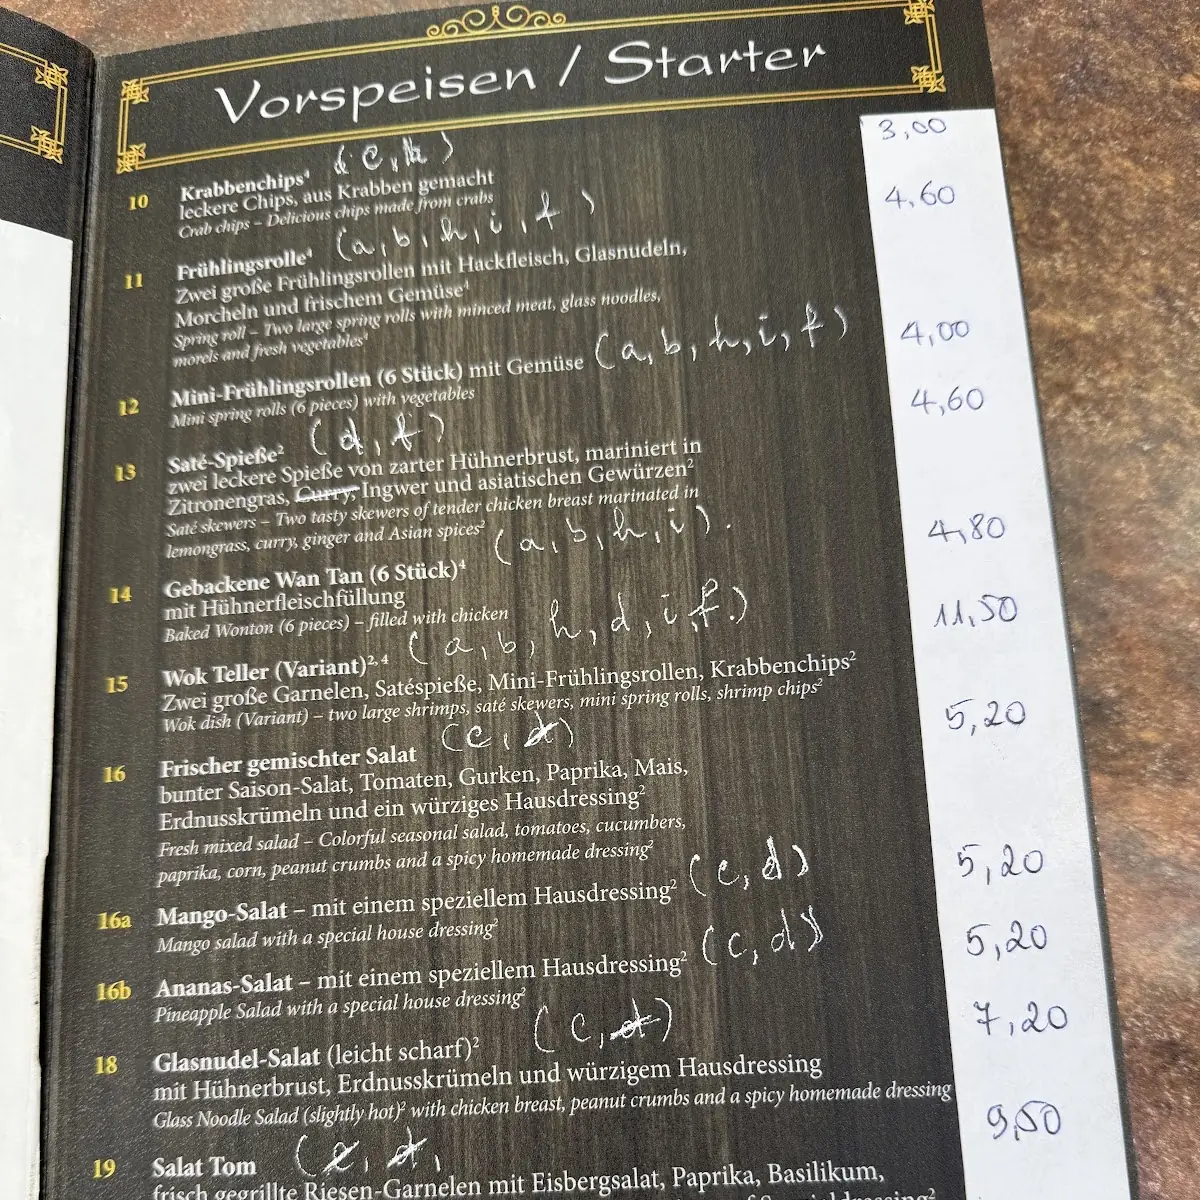 Vorspeisen / Starter
3,00
10 Krabbenchips⁴
leckere Chips, aus Krabben gemacht
Crab chips – Delicious chips made from crabs
4,60
11 Frühlingsrolle⁴ (a, b, h, i, f)
Zwei große Frühlingsrollen mit Hackfleisch, Glasnudeln,
Morcheln und frischem Gemüse⁴
Spring roll – Two large spring rolls with minced meat, glass noodles,
morels and fresh vegetables⁴
4,00
12 Mini-Frühlingsrollen (6 Stück) mit Gemüse (a, b, h, i, f)
Mini spring rolls (6 pieces) with vegetables
4,60
13 Saté-Spieße² (d, f)
zwei leckere Spieße von zarter Hühnerbrust, mariniert in
Zitronengras, Curry, Ingwer und asiatischen Gewürzen²
Saté skewers – Two tasty skewers of tender chicken breast marinated in
lemongrass, curry, ginger and Asian spices²
4,80
14 Gebackene Wan Tan (6 Stück)⁴ (a, b, h, i).
mit Hühnerfleischfüllung
Baked Wonton (6 pieces) – filled with chicken
11,50
15 Wok Teller (Variant)²,⁴ (a, b, h, d, i, f.)
Zwei große Garnelen, Satéspieße, Mini-Frühlingsrollen, Krabbenchips²
Wok dish (Variant) – two large shrimps, saté skewers, mini spring rolls, shrimp chips²
5,20
16 Frischer gemischter Salat (c, d)
bunter Saison-Salat, Tomaten, Gurken, Paprika, Mais,
Erdnusskrümeln und ein würziges Hausdressing²
Fresh mixed salad – Colorful seasonal salad, tomatoes, cucumbers,
paprika, corn, peanut crumbs and a spicy homemade dressing²
5,20
16a Mango-Salat – mit einem speziellem Hausdressing² (c, d)
Mango salad with a special house dressing²
5,20
16b Ananas-Salat – mit einem speziellem Hausdressing² (c, d)
Pineapple Salad with a special house dressing²
7,20
18 Glasnudel-Salat (leicht scharf)² (c, d)
mit Hühnerbrust, Erdnusskrümeln und würzigem Hausdressing
Glass Noodle Salad (slightly hot)² with chicken breast, peanut crumbs and a spicy homemade dressing
9,50
19 Salat Tom
frisch gegrillte Riesen-Garnelen mit Eisbergsalat, Paprika, Basilikum,